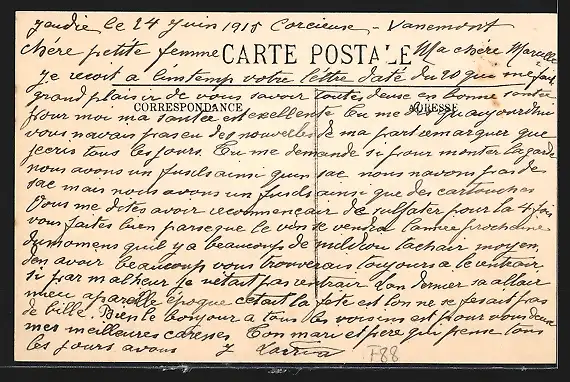 Jeudie le 24 Juin 1915 Corcieux - Vanemont
chère petite femme CARTE POSTALE Ma chère Marcelle
Je recoit a linstemp votre lettre daté du 20 qui me fait
grand plaisir de vous savoir toutes deuse en bonne santée
CORRESPONDANCE ADRESSE
pour moi ma santée est exellente Tu me dis qu aujourdhui
vous navais pas eu des nouvelles de ma part remarquer que
jecris tous les jours. Tu me demande si pour monter la garde
nous avons un fusils ainsi quun sac nous navons pas de
sac mais nous avons un fusils ainsi que des cartouches
Vous me dites avoir recommencair de sulfater pour la 4 fois
vous faites bien parseque le vin se vendra lanée prochaine
du momens quil y a beaucoups de mildiou tachair moyen
den avoir beaucoup vous trouverais toujours a le ventrair
si par malheur je nétait pas rentrair Lan dernier sa allair
mieu aparelle époque cetait la fete est lon ne se fesait pas
de bille. Bien le bonjour a tous les voisins est pour vous deuse
mes meilleures caresses Ton mari et pere qui pense tous
les jours avous
F88